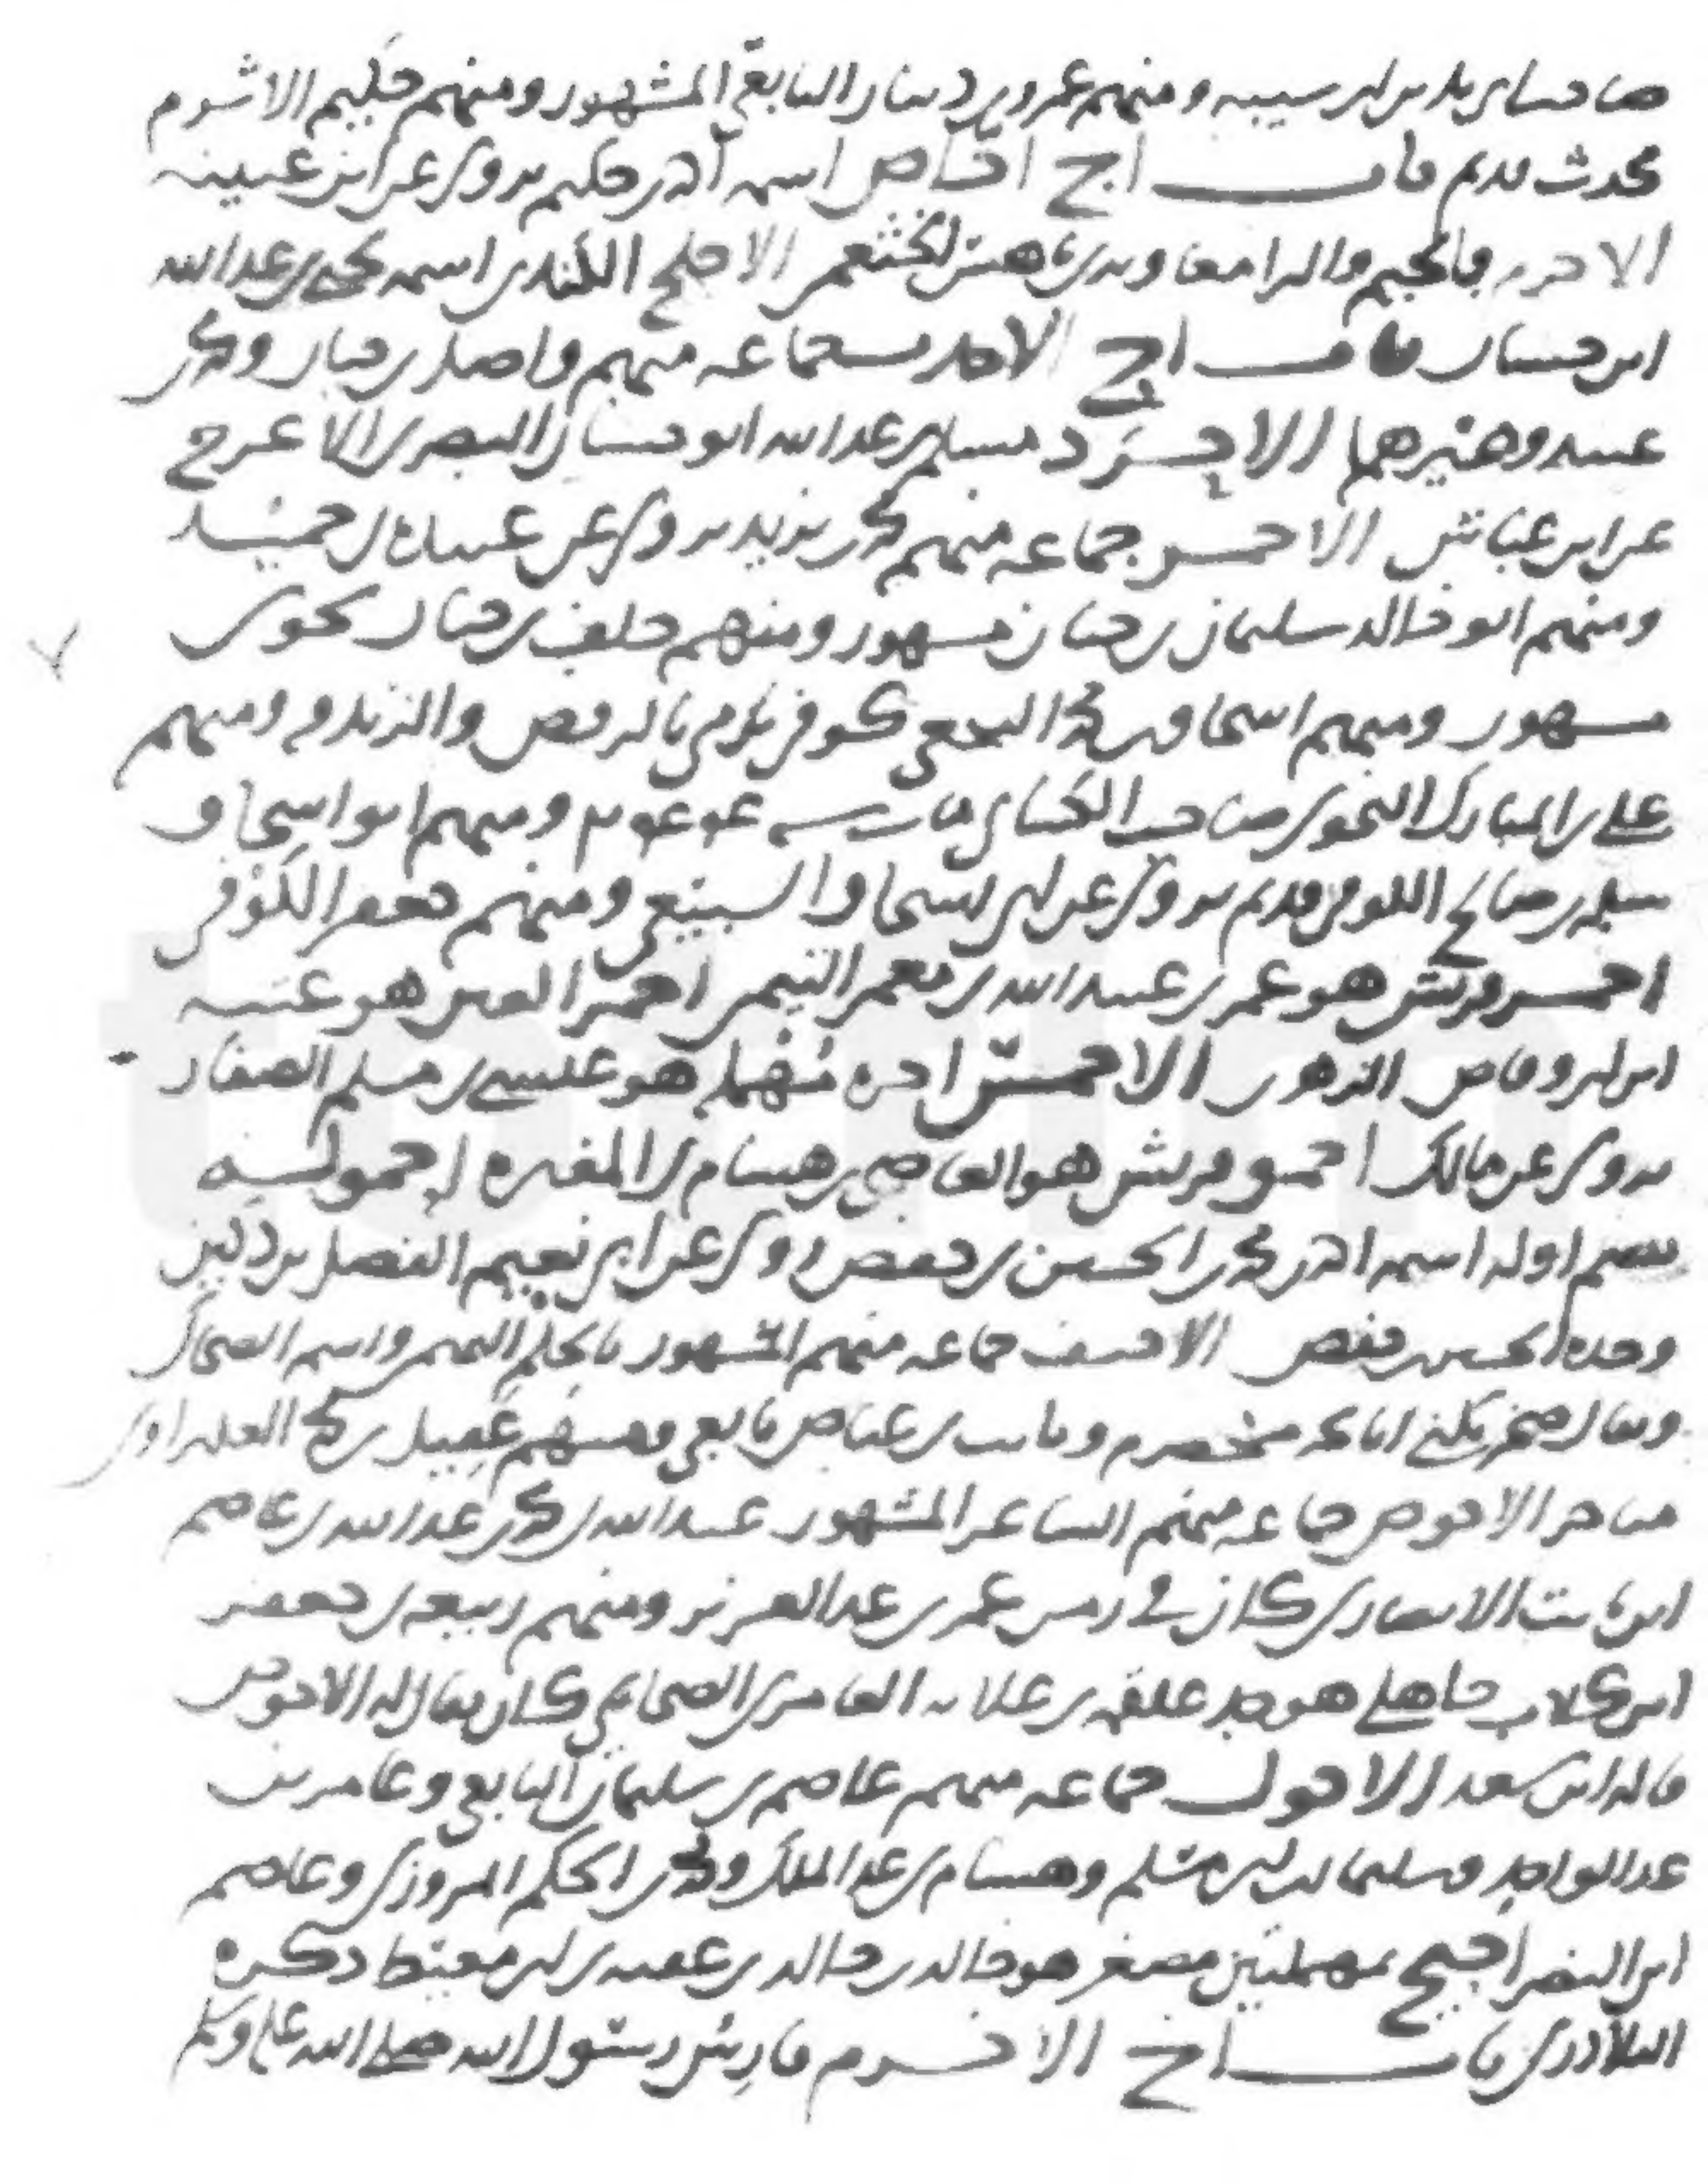 صاحب ابن ابي سيبه ومنهم عمرو بن دينار التابعي المشهور ومنهم حكيم الاثرم
محدث قديم باب اج اسمه اخر حكيم يروي عن ابن عيينه
الاجرم بالجيم والراء معاوية بن ناهس الخثعمي الاجلح الكندي اسمه يحيى بن عبدالله
ابن حسان باب اح الاحدب جماعه منهم واصل بن حيان ومحمد بن
عبيد وغيرهما الاحرد مسلم بن عبدالله ابو حسان البصري الاعرج
عن ابن عباس الاحمر جماعه منهم محمد بن يزيد يروي عن عبيدة بن حميد
ومنهم ابو خالد سليمان بن حيان مشهور ومنهم خلف بن حيان نحوي
مشهور ومنهم اسحاق بن محمد النخعي كوفي يرمى بالرفض والزندقه ومنهم
علي بن المبارك النحوي صاحب الكسائي مات سنه ومنهم ابو اسحاق
سلمه بن صالح الكوفي قديم يروي عن ابي اسحاق السبيعي ومنهم جعفر الكوفي
احمر قريش هو عمر بن عبيدالله بن معمر التيمي احمر العين هو عتبه
ابن ابي وقاص الزهري الاحمر اخره مهمله هو عيسى بن مسلم الصفار
يروي عن مالك احمق قريش هو العاصي بن هشام بن المغيره احمولسه
بضم اوله اسمه احمد بن محمد بن الحسين بن حفص روى عن ابي نعيم الفضل بن دكين
وجده الحسين بن حفص الاحنف جماعه منهم المشهور بالحلم التميمي واسمه الضحاك
ويقال صخر يكنى ابا بحر مخضرم وثابت بن عياض تابعي ومنهم عقيل بن محمد العكبراوي
شاعر الاحوص جماعه منهم الشاعر المشهور عبدالله بن محمد بن عبدالله بن عاصم
ابن ثابت الانصاري كان في زمن عمر بن عبدالعزيز ومنهم ربيعه بن جعفر
ابن كلاب جاهلي هو جد علقمه بن علاثه العامري الصحابي كان يقال له الاحوص
قاله ابن سعد الاحول جماعه منهم عاصم بن سليمان التابعي وعامر بن
عبدالواحد وسليمان بن ابي مسلم وهشام بن عبدالملك ومحمد بن الحكم المروزي وعاصم
ابن النضر احيح بمهملتين مصغر هو خالد بن خالد بن عقبه بن ابي معيط ذكره
البلاذري باب اخ الاخرم فارس رسول الله صلى الله عليه وسلم